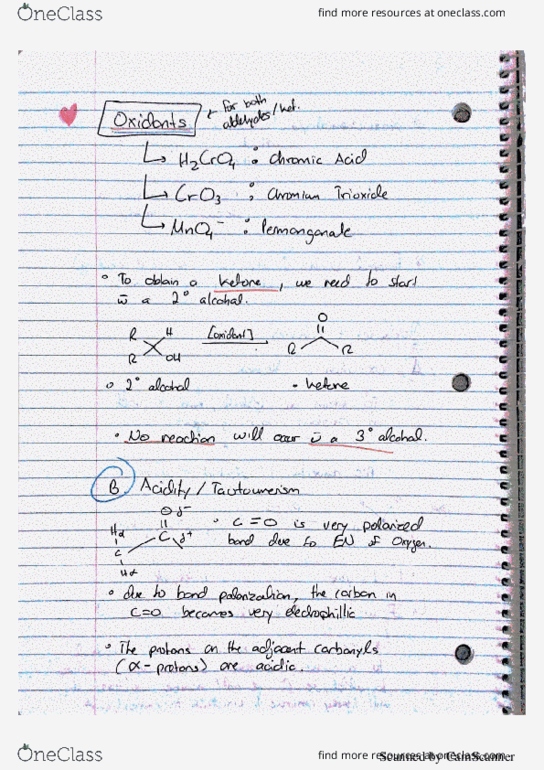 OneClass
find more resources at oneclass.com
Oxidants
for both
aldehydes/ket.
H₂CrO₄ : Chromic Acid
CrO₃ : Chromium Trioxide
MnO₄⁻ : Permanganate
To obtain a ketone, we need to start
w̄ a 2° alcohol.
R H [oxidant] O
R OH R R
2° alcohol - ketone
No reaction will occur w̄ a 3° alcohol.
B. Acidity / Tautomerism
O δ⁻
Hα C δ⁺ C=O is very polarized
C bond due to EN of Oxygen.
Hα
due to bond polarization, the carbon in
C=O becomes very electrophillic
The protons on the adjacent carbonyls
(α-protons) are acidic.
OneClass
find more resources at oneclass.com
Scanned by CamScanner